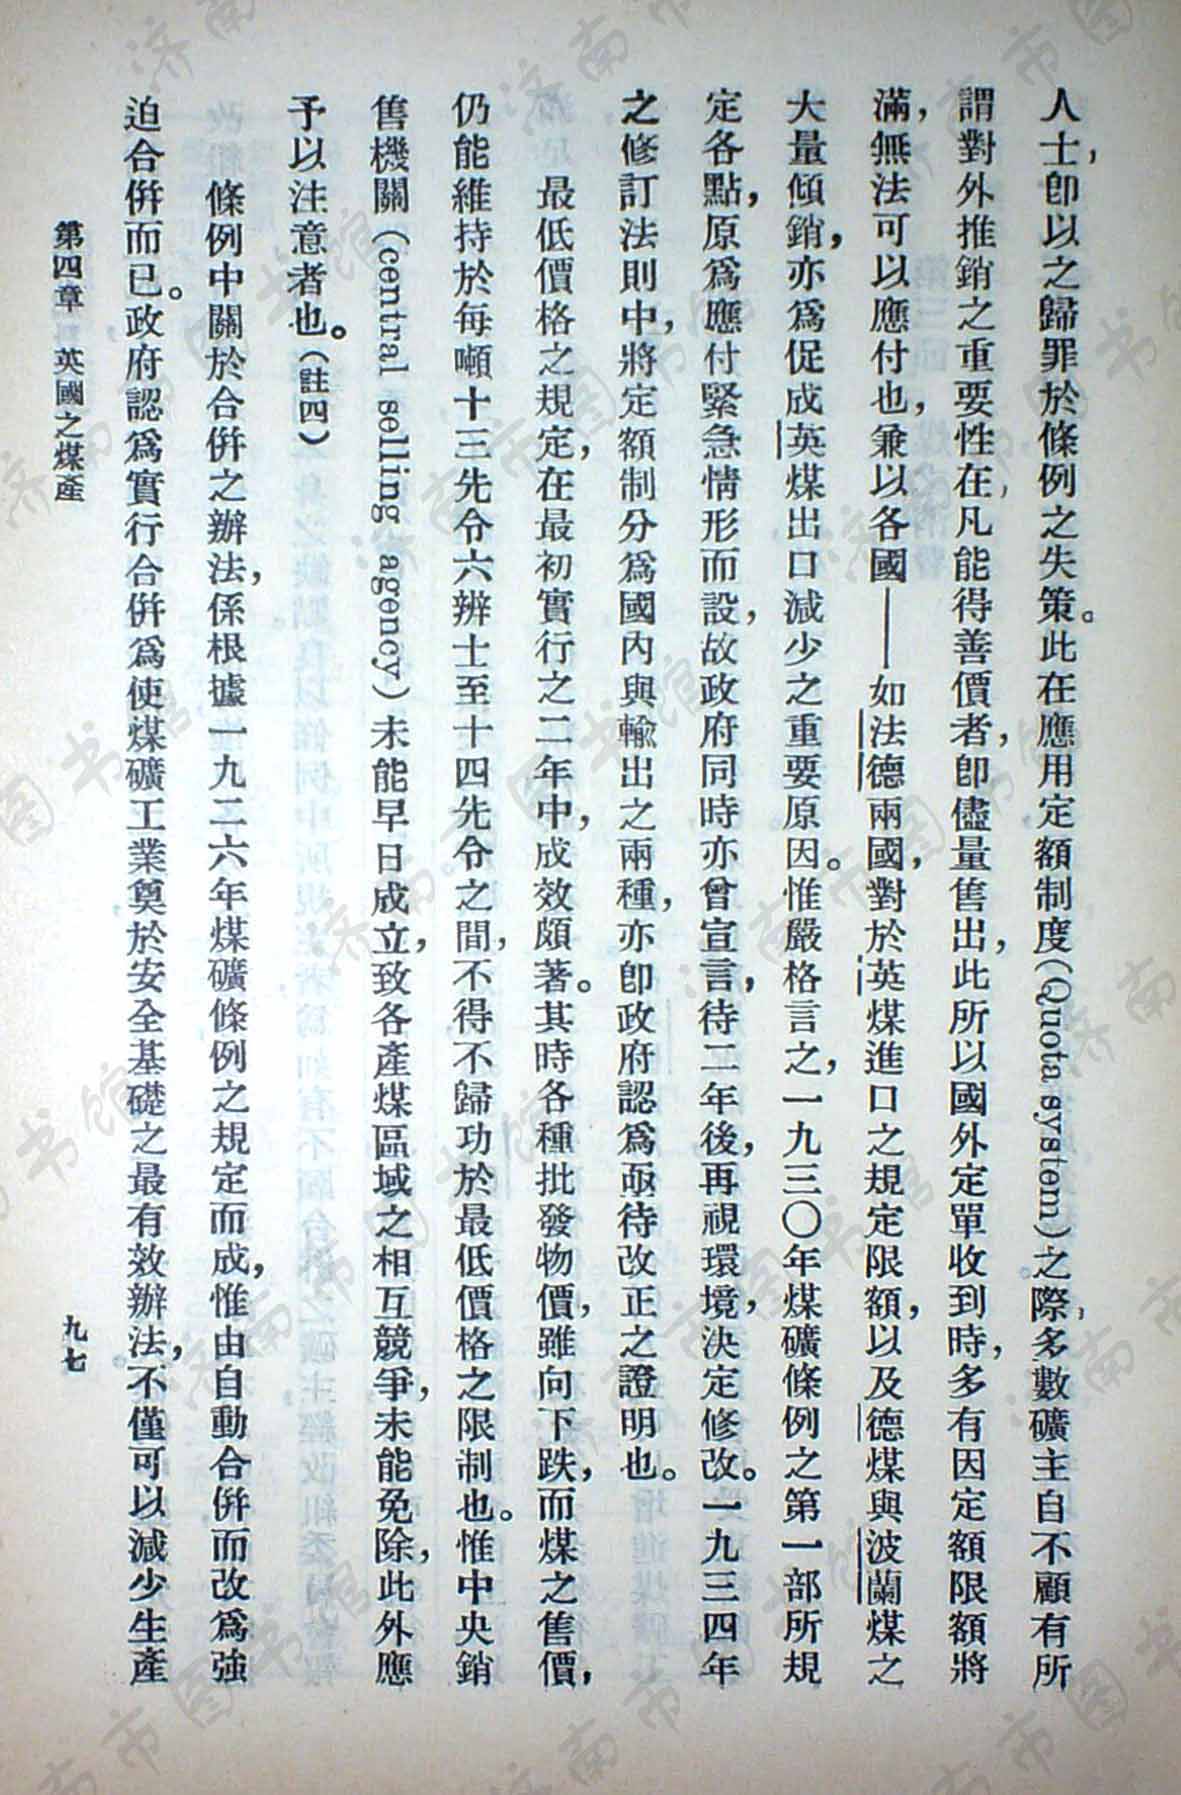 人士，卽以之歸罪於條例之失策。此在應用定額制度（Quota system）之際，多數礦主自不顧有所
謂對外推銷之重要性在，凡能得善價者，卽儘量售出，此所以國外定單收到時，多有因定額限額將
滿，無法可以應付也，兼以各國——如法德兩國，對於英煤進口之規定限額，以及德煤與波蘭煤之
大量傾銷，亦爲促成英煤出口減少之重要原因。惟嚴格言之，一九三〇年煤礦條例之第一部所規
定各點，原爲應付緊急情形而設，故政府同時亦曾宣言，待二年後，再視環境，決定修改。一九三四年
之修訂法則中，將定額制分爲國內與輸出之兩種，亦卽政府認爲亟待改正之證明也。
最低價格之規定，在最初實行之二年中，成效頗著。其時各種批發物價，雖向下跌，而煤之售價，
仍能維持於每噸十三先令六辨士至十四先令之間，不得不歸功於最低價格之限制也。惟中央銷
售機關（central selling agency）未能早日成立，致各產煤區域之相互競爭，未能免除，此外應
予以注意者也。（註四）
條例中關於合併之辦法，係根據一九二六年煤礦條例之規定而成，惟由自動合併而改爲強
迫合併而已。政府認爲實行合併爲使煤礦工業奠於安全基礎之最有效辦法，不僅可以減少生產
第四章 英國之煤產
九七
济南市图书馆